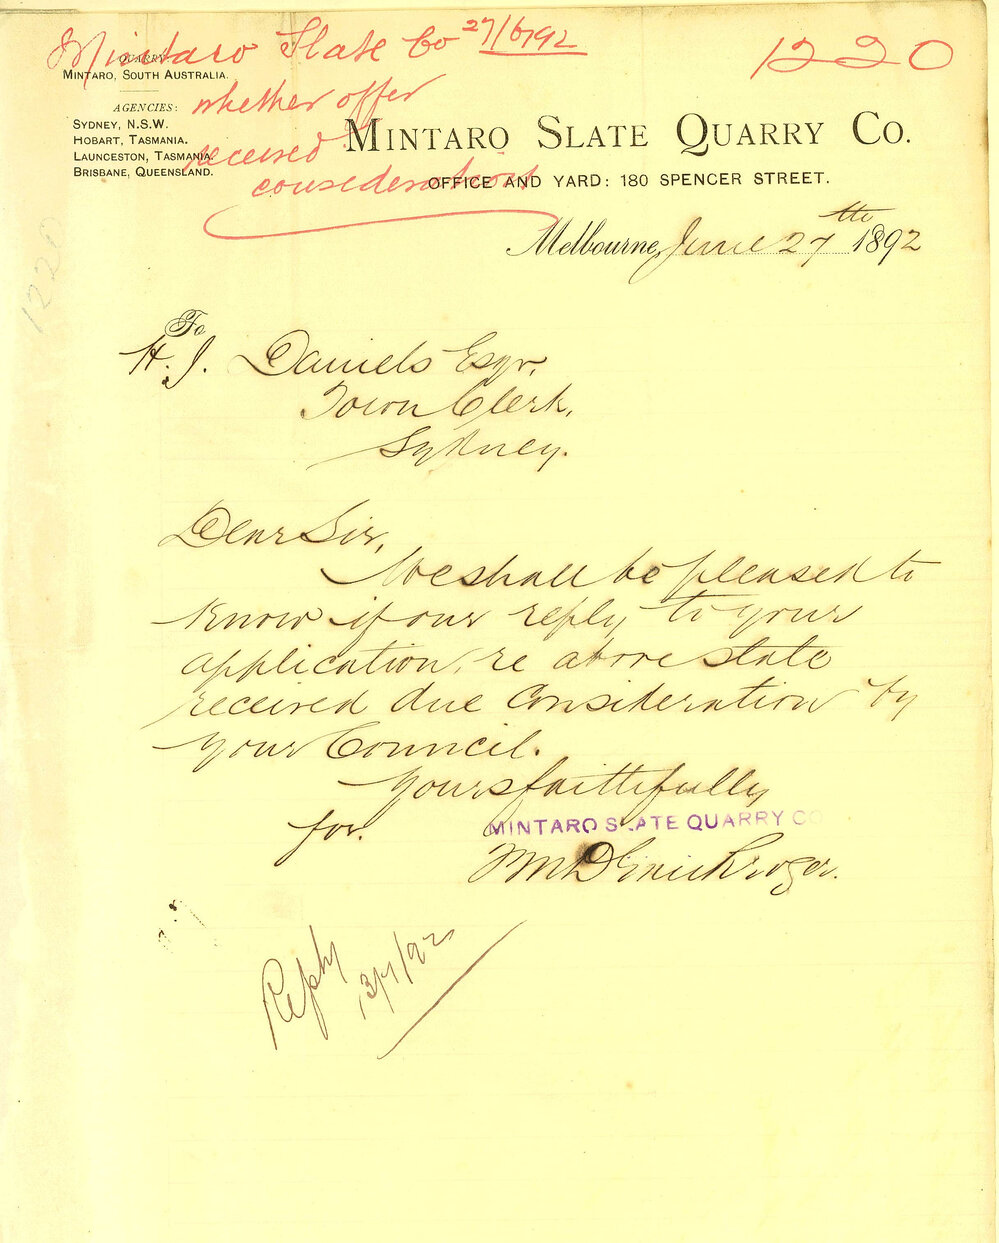 Mintaro Slate Co 27/6/92
1220
whether offer
received
consideration
QUARRY
MINTARO, SOUTH AUSTRALIA.
AGENCIES:
SYDNEY, N.S.W.
HOBART, TASMANIA.
LAUNCESTON, TASMANIA.
BRISBANE, QUEENSLAND.
MINTARO SLATE QUARRY CO.
OFFICE AND YARD: 180 SPENCER STREET.
Melbourne, June 27th 1892
1220
To
H. J. Daniels Esqr.
Town Clerk,
Sydney.
Dear Sir,
We shall be pleased to
know if our reply to your
application, re above slate
received due consideration by
your Council.
Yours faithfully
for. MINTARO SLATE QUARRY CO
Kroger.
Reply 13/7/92